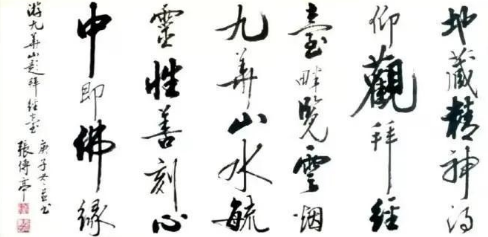 地藏精神得
仰觀拜經
臺畔覽雲烟
九華山水毓
靈性善刻心
中即佛緣
游九華山題拜經臺
庚子冬書
張亭